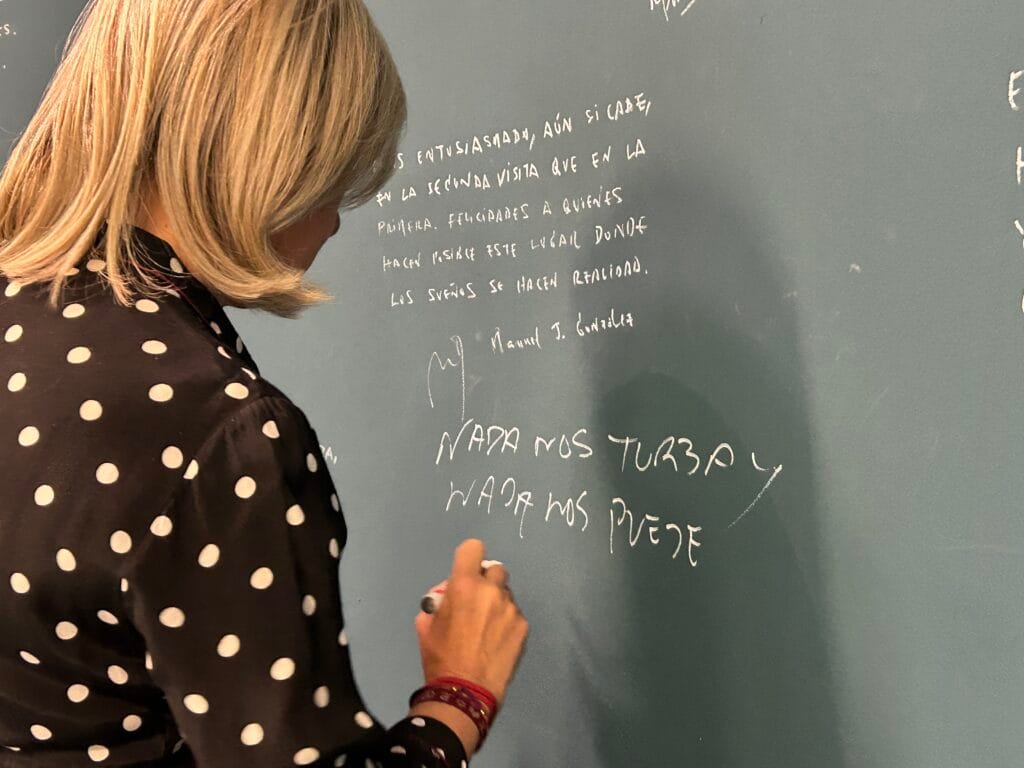 ENTUSIASMADO, AÚN SI CABE,
EN LA SEGUNDA VISITA QUE EN LA
PRIMERA. FELICIDADES A QUIENES
HACEN POSIBLE ESTE LUGAR DONDE
LOS SUEÑOS SE HACEN REALIDAD.
Manuel J. González
NADA NOS TURBA Y
NADA NOS PUEDE